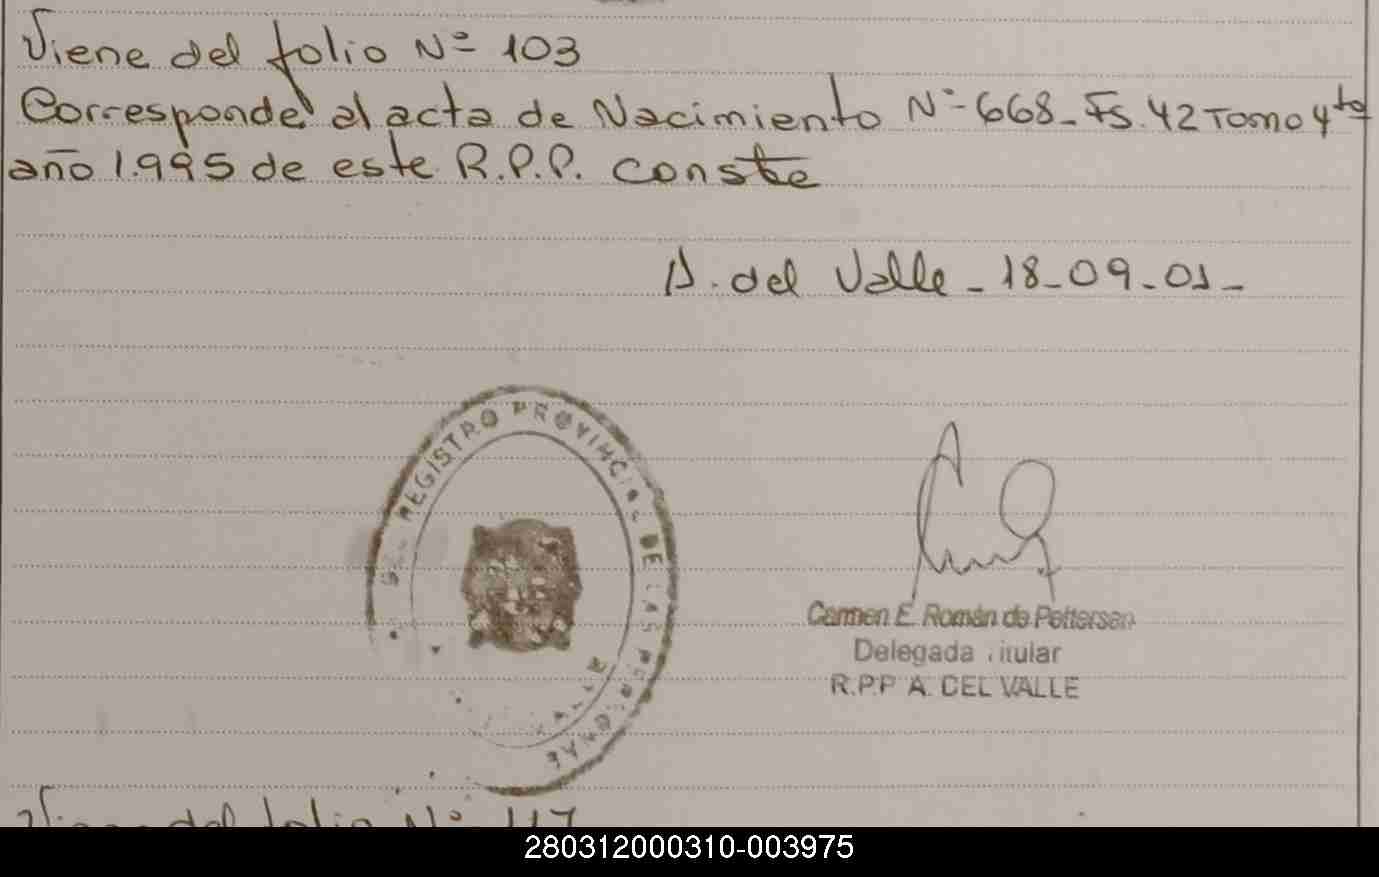 Viene del folio Nº 103
Corresponde al acta de Nacimiento Nº 668_Fs. 42 Tomo 4to
año 1.995 de este R.P.P. conste
A. del Valle_18_09_01_
REGISTRO PROVINCIAL DE LAS PERSONAS
Carmen E. Román de Pettersen
Delegada Titular
R.P.P A. DEL VALLE
Viene del folio Nº 117
280312000310-003975